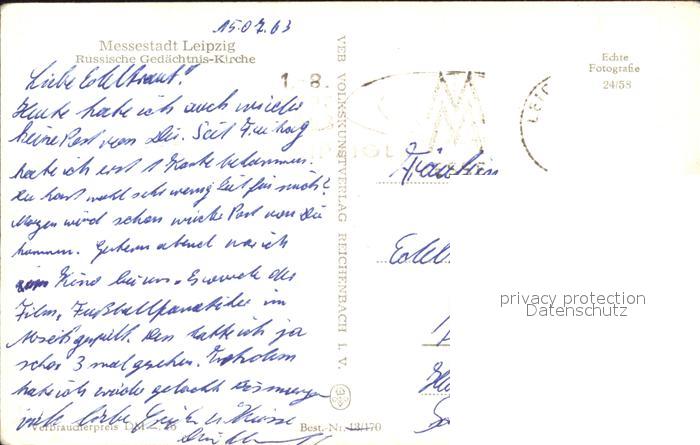 15.07.63
Messestadt Leipzig
Russische Gedächtnis-Kirche
Liebe Edeltraut!
Heute habe ich auch wieder
keine Post von Dir. Seit Freitag
habe ich erst 1 Karte bekommen.
Du hast wohl sehr wenig Zeit für mich?
Morgen wird schon wieder Post von Dir
kommen. Gestern abend war ich
im Kino bei uns. Es wurde der
Film, Fußballfanatiker im
gespielt. Den hatte ich ja
schon 3 mal gesehen. Trotzdem
habe ich wieder gelacht
viele liebe Grüße u. Küsse
Verbraucherpreis DM
VEB VOLKSKUNSTVERLAG REICHENBACH i. V.
Best.-Nr. 13/170
1 8.
Echte
Fotografie
24/58
LEIP
Fräulein
Edel
privacy protection
Datenschutz